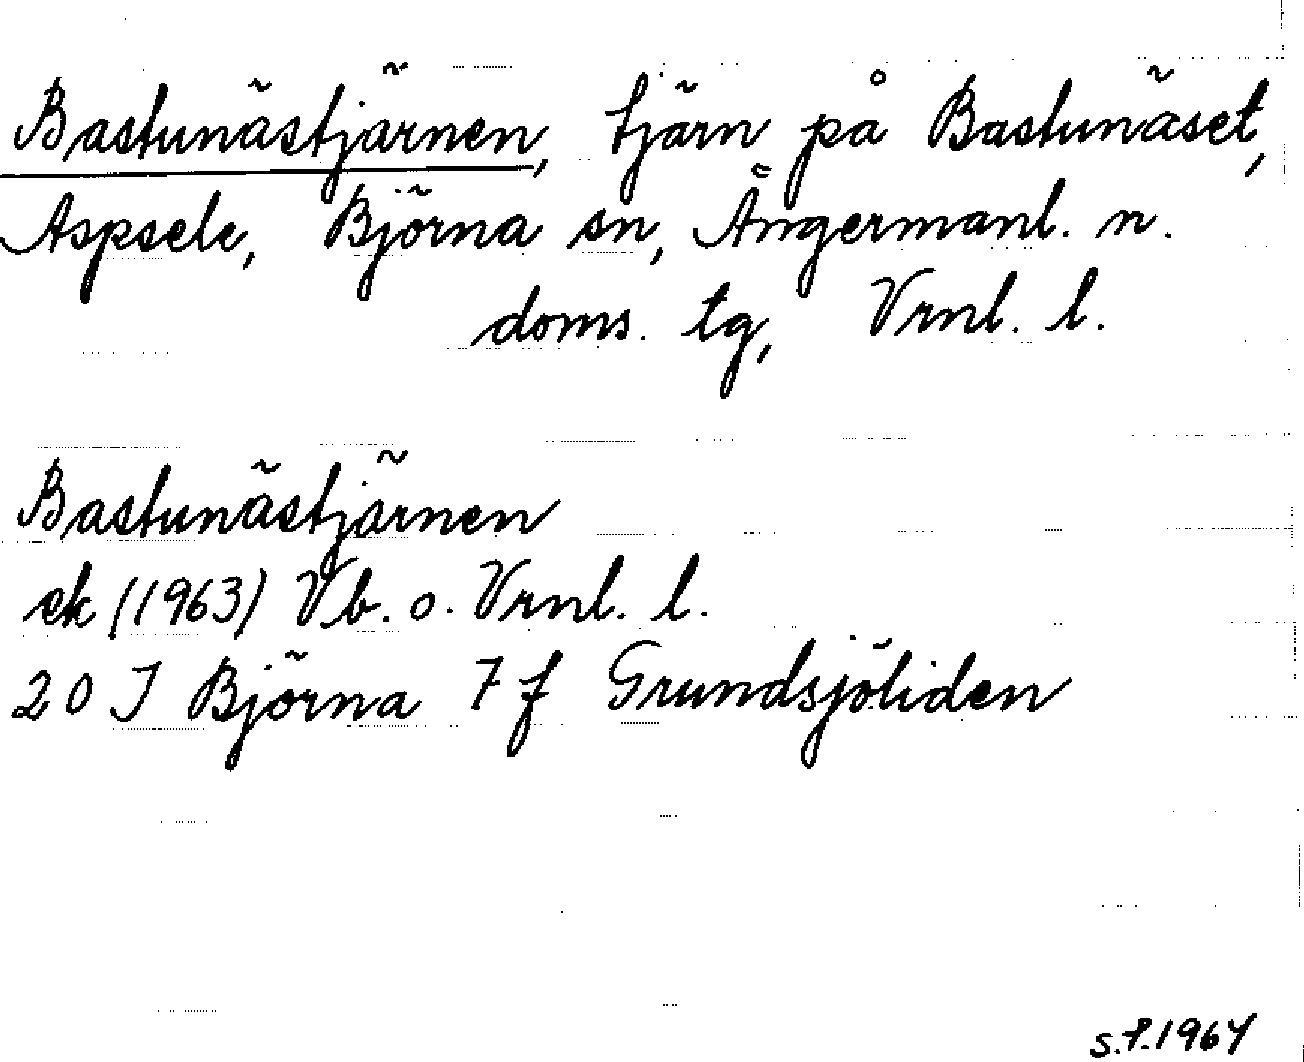 Bastunästjärnen, tjärn på Bastunäset,
Aspsele, Björna sn, Ångermanl. n.
doms. tg, Vrnl. l.
Bastunästjärnen
ek (1963) Vb. o. Vrnl. l.
20 J Björna 7 f Grundsjöliden
S.F. 1964